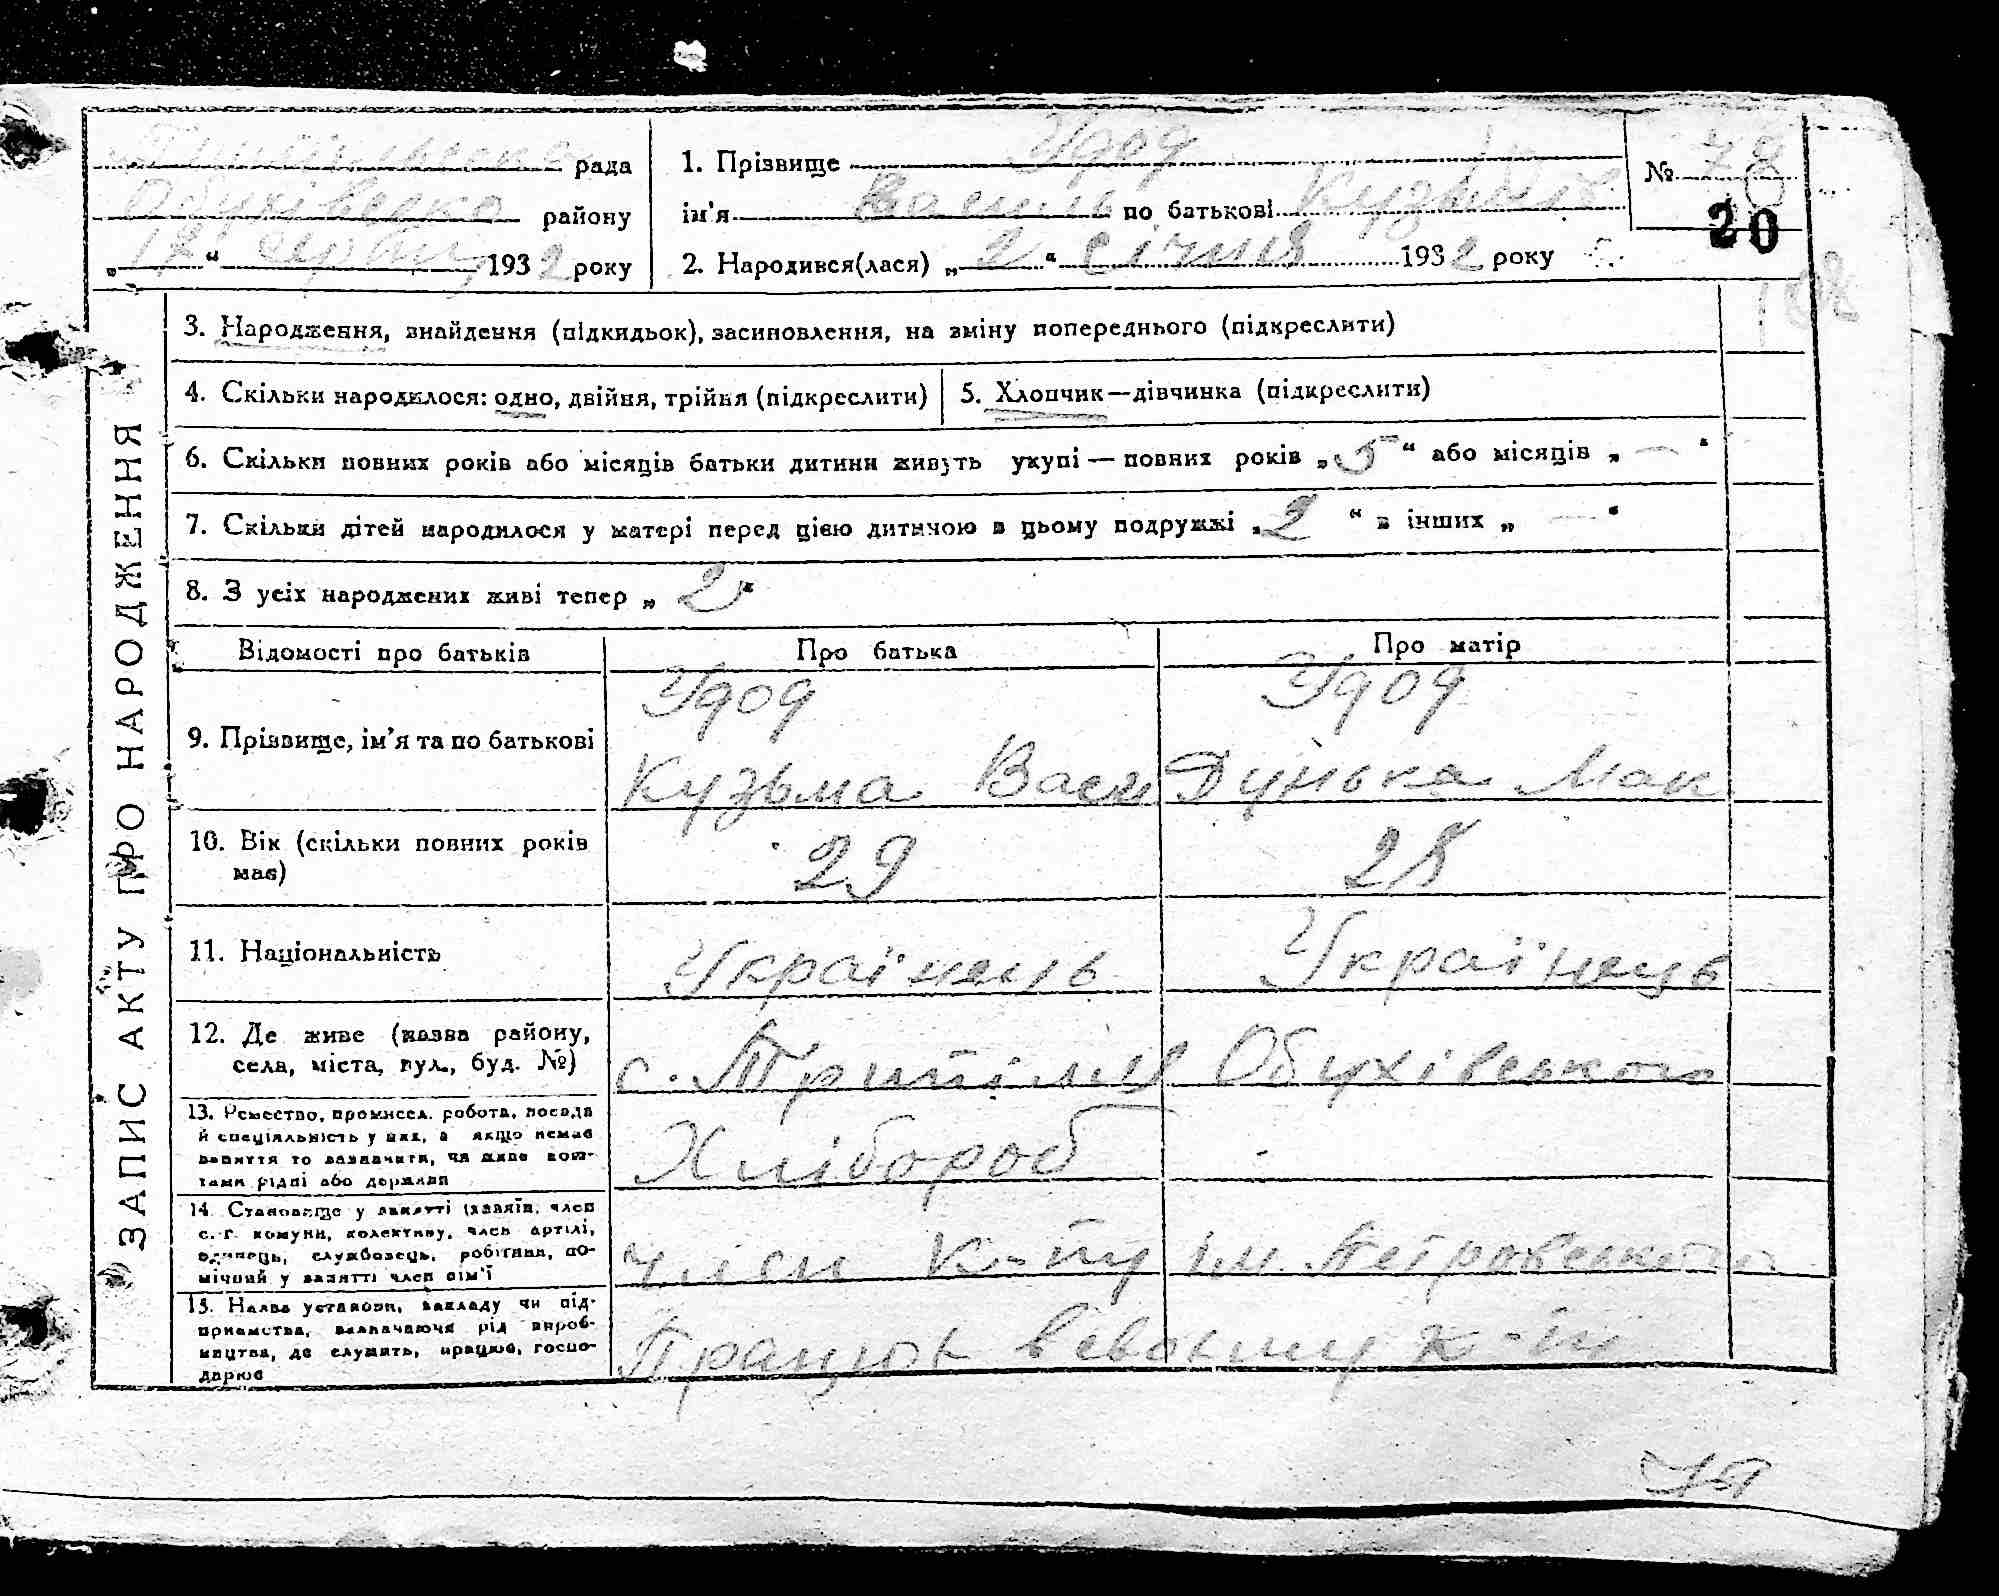 Трипільська рада
Обухівського району
„12“ серпня 1932 року
1. Прізвище Удод
ім'я Василь по батькові Кузьмів
2. Народився(лася) „2“ січня 1932 року
№ 78
20
3. Народження, знайдення (підкидьок), засиновлення, на зміну попереднього (підкреслити)
4. Скільки народилося: одно, двійня, трійня (підкреслити)
5. Хлопчик—дівчинка (підкреслити)
6. Скільки повних років або місяців батьки дитини живуть укупі — повних років „5“ або місяців „—“
7. Скільки дітей народилося у матері перед цією дитиною в цьому подружжі „2“ в інших „—“
8. З усіх народжених живі тепер „2“
ЗАПИС АКТУ ПРО НАРОДЖЕННЯ
Відомості про батьків Про батька Про матір
9. Прізвище, ім'я та по батькові
Удод
Кузьма Васи
Удод
Дунька Мак
10. Вік (скільки повних років
має)
29
28
11. Національність
Українець
Українець
12. Де живе (назва району,
села, міста, вул., буд. №)
с. Трипілля Обухівського
13. Ремество, промисел, робота, посада
й спеціяльність у них, а якщо немає
заняття то зазначити, чи живе кош-
тами рідні або держави
Хлібороб
14. Становище у занятті (хазяїн, член
с.-г. комуни, колективу, член артілі,
одинець, службовець, робітник, по-
мічний у занятті член сім'ї
член к-пу ім. Петровського
15. Назва установи, закладу чи під-
приємства, зазначаючи рід вироб-
ництва, де служить, працює, госпо-
дарює
Працює